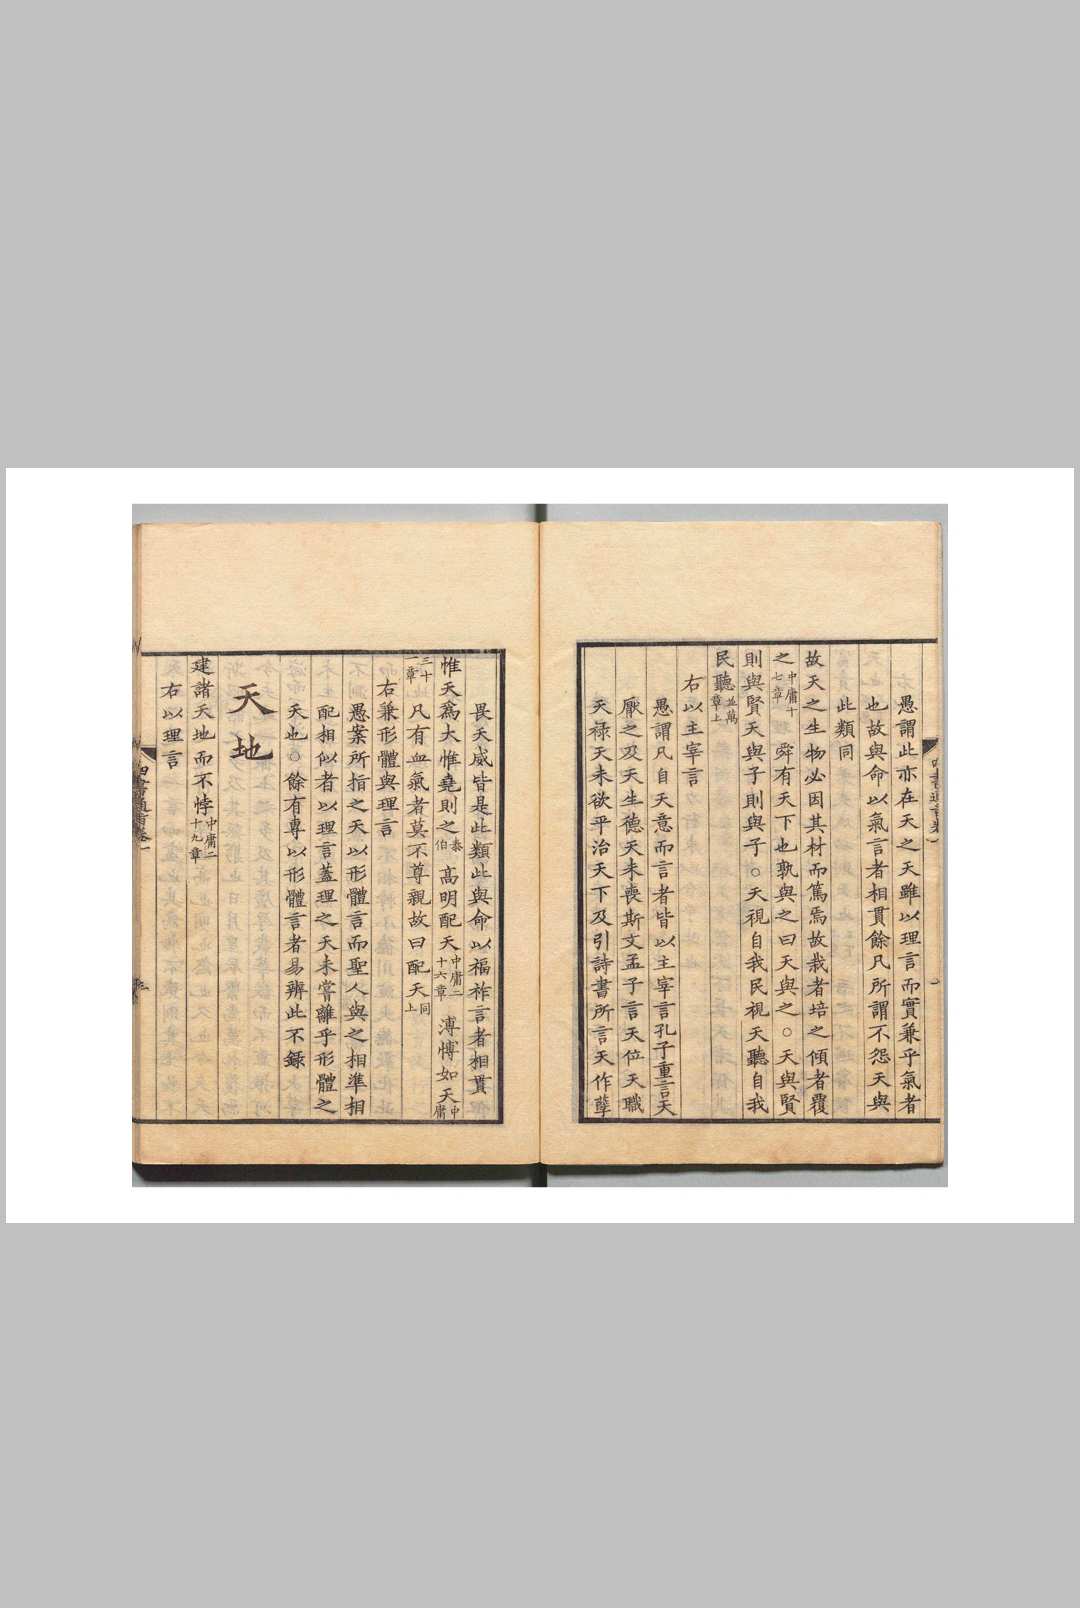 愚謂此亦在天之天雖以理言而實兼乎氣者
也故與命以氣言者相貫餘凡所謂不怨天與
此類同
故天之生物必因其材而篤焉故栽者培之傾者覆
之中庸十七章 舜有天下也孰與之曰天與之○天與賢
則與賢天與子則與子○天視自我民視天聽自我
民聽並萬章上
右以主宰言
愚謂凡自天意而言者皆以主宰言孔子重言天
厭之及天生德天未喪斯文孟子言天位天職
天祿天未欲平治天下及引詩書所言天作孽
畏天威皆是此類此與命以福祚言者相貫
惟天爲大惟堯則之泰伯 高明配天中庸二十六章 溥博如天中庸
三十一章 凡有血氣者莫不尊親故曰配天同上
右兼形體與理言
愚案所指之天以形體言而聖人與之相準相
配相似者以理言蓋理之天未嘗離乎形體之
天也○餘有專以形體言者易辨此不錄
天地
建諸天地而不悖中庸二十九章
右以理言